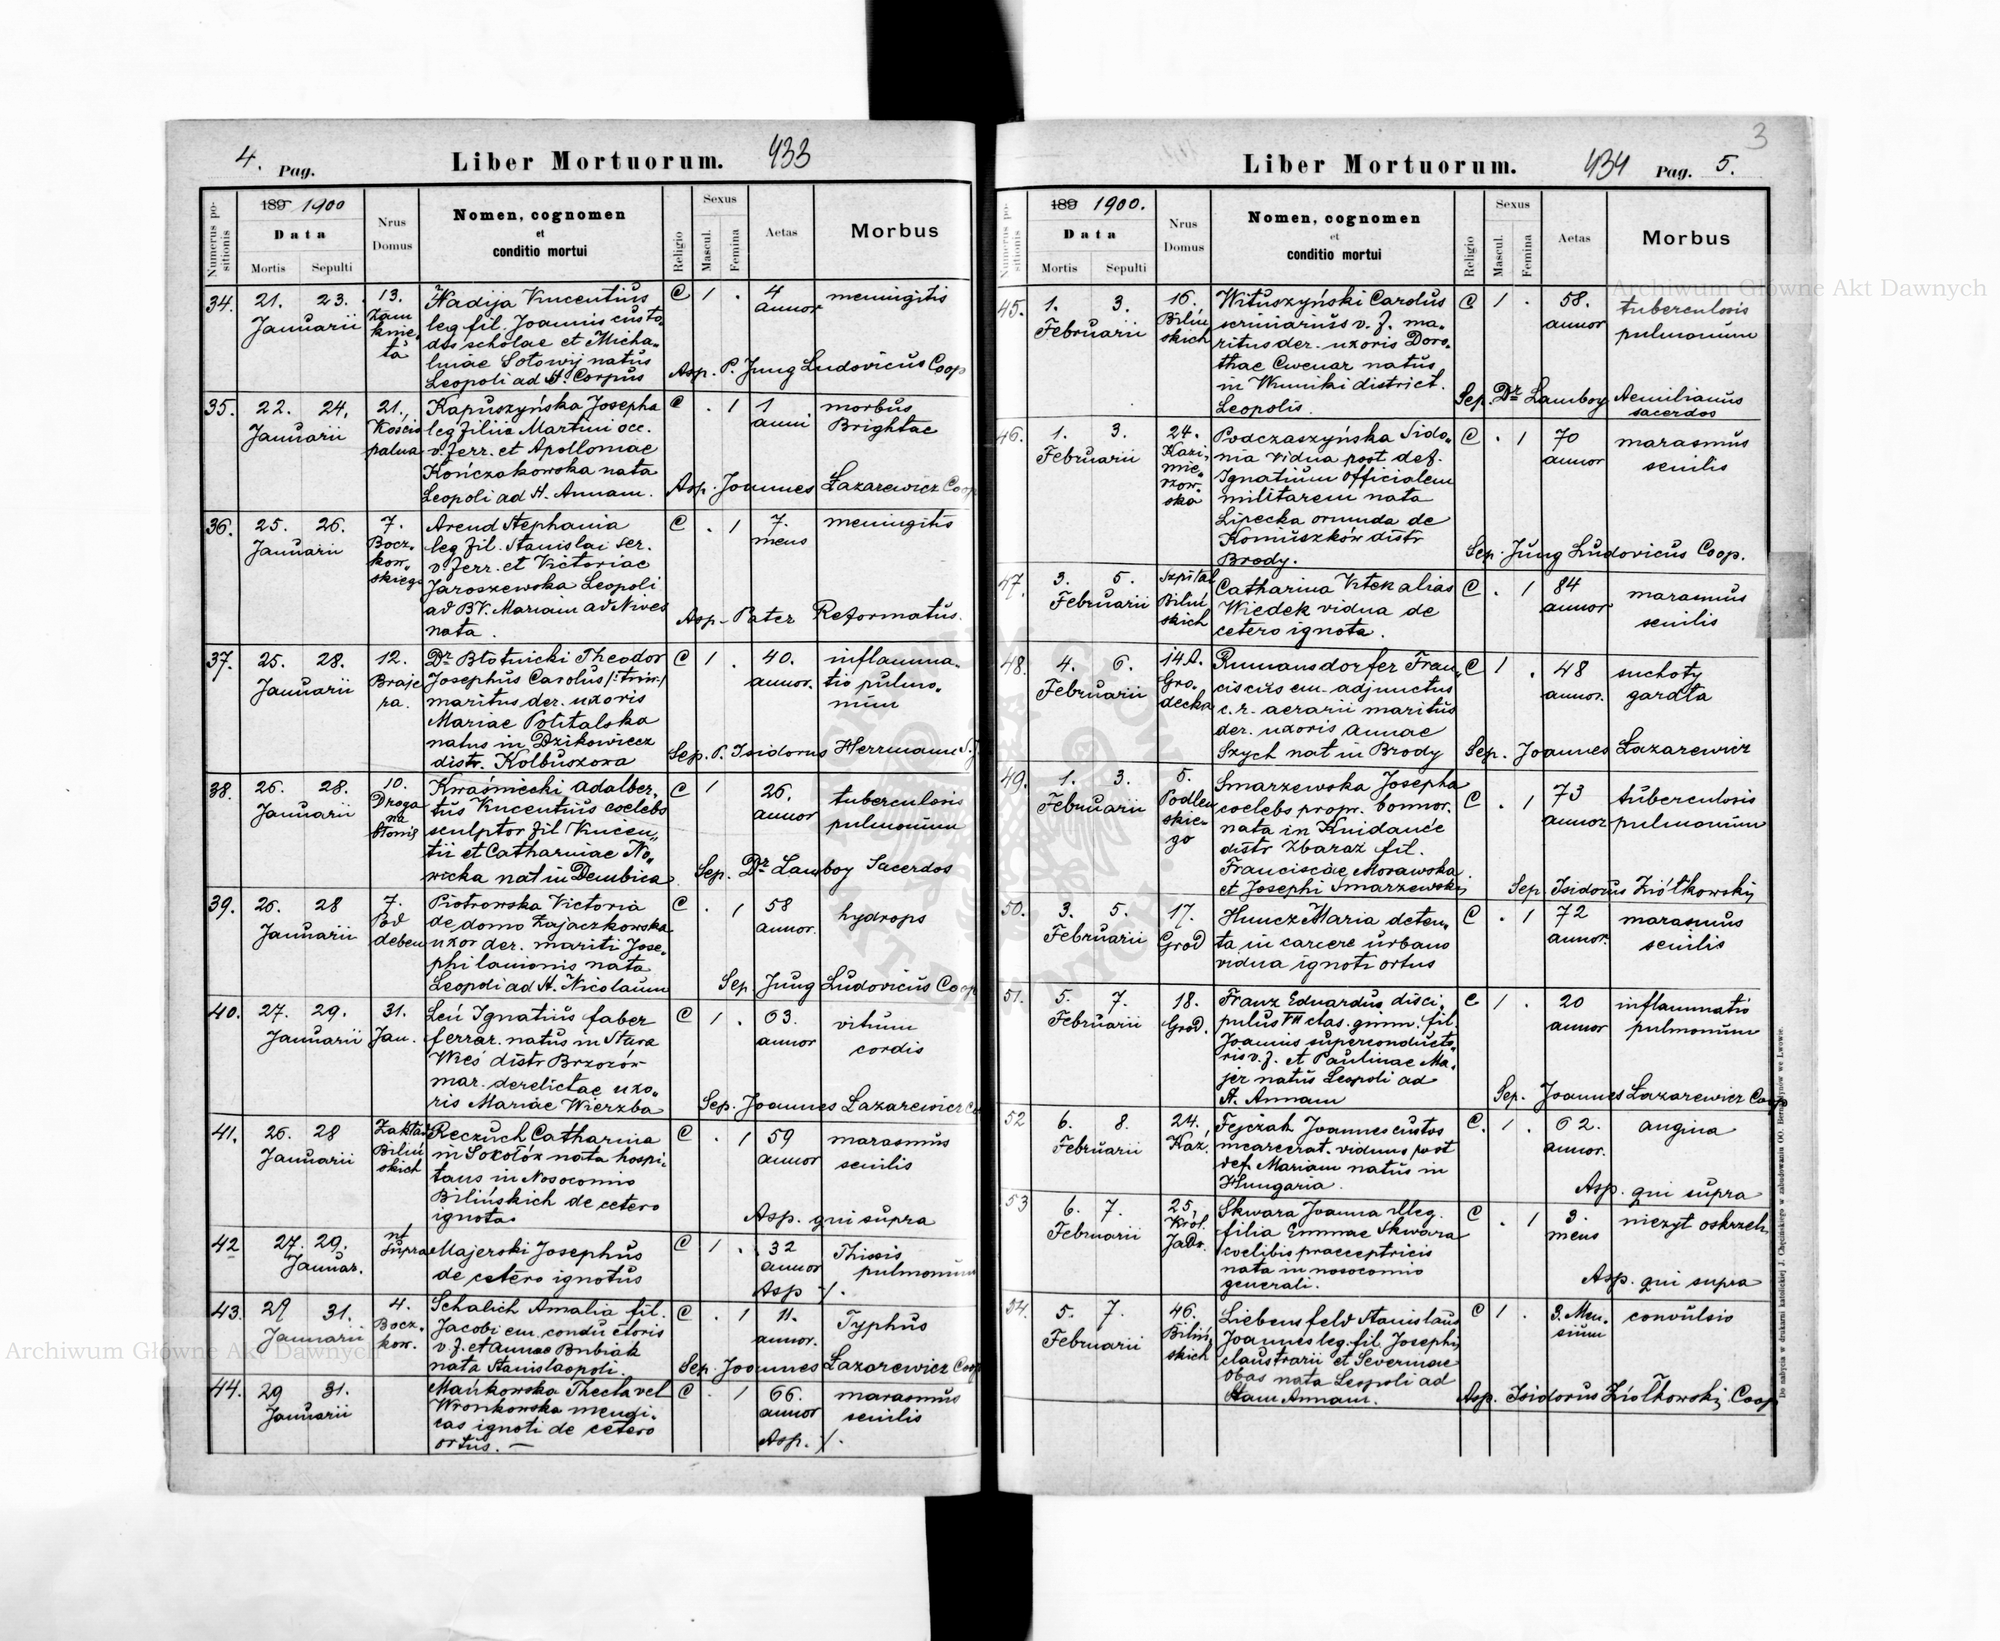 4. Pag. Liber Mortuorum. 433
Numerus positionis
189 1900
Data
Mortis Sepulti
Nrus Domus
Nomen, cognomen
et
conditio mortui
Religio
Sexus
Mascul. Femina
Aetas
Morbus
34. 21. 23. Januarii
13.
Zam
knię
ta
Hadija Vincentius
leg fil. Joannis custo„
dis scholae et Micha„
linae Sotowij natus
Leopoli ad St. Corpus
C 1 . 4 annor meningitis
Asp. P. Jung Ludovicus Coop
35. 22. 24. Januarii
21.
Kościo
palna
Kapuszyńska Josepha
leg filia Martini occ.
v. ferr. et Apolloniae
Kończakowska nata
Leopoli ad St. Annam.
C . 1 1 anni morbus
Brightae
Asp. Joannes Łazarewicz Coop
36. 25. 26. Januarii
7.
Bocz„
kow„
skiego
Arend Stephania
leg fil. Stanislai ser.
v. ferr. et Victoriae
Jaroszewska Leopoli
ad BV. Mariam ad Nives
nata.
C . 1 7. mens meningitis
Asp. Pater Reformatus.
37. 25. 28. Januarii
12.
Braje
ra.
Dr Błotnicki Theodor
Josephus Carolus /:trin:/
maritus der. uxoris
Mariae Politalska
natus in Dzikowiecz
distr. Kolbuszowa
C 1 . 40. annor. inflamma„
tio pulmo„
num
Sep. P. Isidorus Herrmann S.J
38. 26. 28. Januarii
10.
Droga
na
błonie
Kwaśnicki Adalber„
tus Vincentius coelebs
sculptor fil Vincen„
tii et Catharinae No„
wicka nat in Dembica
C 1 26. annor tuberculosis
pulmonum
Sep. Dr Lamboy Sacerdos
39. 26. 28 Januarii
7.
Pod
debem
Piotrowska Victoria
de domo Zajaczkowska
uxor der. mariti Jose„
phi lanionis nata
Leopoli ad St. Nicolaum
C . 1 58 annor. hydrops
Sep. Jung Ludovicus Coop
40. 27. 29. Januarii
31.
Jan.
Leń Ignatius faber
ferrar. natus in Stara
Wieś distr Brzozów
mar. derelictae uxo„
ris Mariae Wierzba
C 1 . 63. annor vitium
cordis
Sep. Joannes Łazarewicz Co
41. 26. 28 Januarii
Zakład
Biliń
skich
Reczuch Catharina
in Sokołów nata hospi„
tans in Nosocomio
Bilińskich de cetero
ignota.
C . 1 59 annor marasmus
senilis
Asp. qui supra
42 27. 29. Januar.
ut
supra
Majerski Josephus
de cetero ignotus
C 1 . 32 annor Thisis
pulmonum
Asp ·/.
43. 29 31. Januarii
4.
Bocz„
kow.
Schalich Amalia fil.
Jacobi em. conductoris
v. f. et Annae Bubiak
nata Stanislaopoli.
C . 1 11. annor. Typhus
Sep. Joannes Łazarewicz Coop
44. 29 31. Januarii
Mańkowska Thecla vel
Wronkowska mendi„
cas ignoti de cetero
ortus. —
C . 1 66. annor marasmus
senilis
Asp. ·/.
3
Liber Mortuorum. 434 Pag. 5.
Numerus positionis
189 1900.
Data
Mortis Sepulti
Nrus Domus
Nomen, cognomen
et
conditio mortui
Religio
Sexus
Mascul. Femina
Aetas
Morbus
45. 1. 3. Februarii
16.
Biliń
skich
Wituszyński Carolus
scriniarius v. f. ma„
ritus der. uxoris Doro„
theae Cwenar natus
in Winniki district.
Leopolis.
C 1 . 58. annor tuberculosis
pulmonum
Sep. Dr Lamboy Aemilianus
sacerdos
46. 1. 3. Februarii
24.
Kazi„
mie„
rzow„
ska
Podczaszyńska Sido„
nia vidua post def.
Ignatium officialem
militarem nata
Lipecka oriunda de
Koniuszków distr
Brody.
C . 1 70 annor marasmus
senilis
Sep. Jung Ludovicus Coop.
47. 3. 5. Februarii
Szpital
Biliń
skich
Catharina Vitek alias
Wiedek vidua de
cetero ignota.
C . 1 84 annor marasmus
senilis
48. 4. 6. Februarii
14A.
Gro„
decka
Rumansdorfer Fran„
ciscus em. adjunctus
c. r. aerarii maritus
der. uxoris Annae
Szych nat in Brody
C 1 . 48 annor. suchoty
gardła
Sep. Joannes Łazarewicz
49. 1. 3. Februarii
5.
Podlew
skie„
go
Smarzewska Josepha
coelebs propr. bonnor.
nata in Hnidawce
distr Zbaraż fil.
Franciscae Morawska
et Josephi Smarzewskij
C . 1 73 annor tuberculosis
pulmonum
Sep. Isidorus Ziółkowskij
50. 3. 5. Februarii
17.
Grod
Huncz Maria deten„
ta in carcere urbano
vidua ignoti ortus
C . 1 72 annor. marasmus
senilis
51. 5. 7. Februarii
18.
Grod.
Franz Eduardus disci„
pulus VII clas. gimn. fil.
Joannis superconducto„
ris v. f. et Paulinae Ma„
jer natus Leopoli ad
St. Annam
C 1 . 20 annor inflammatio
pulmonum
Sep. Joannes Łazarewicz Coop
52 6. 8. Februarii
24.
Kaź.
Fejczak Joannes custos
incarcerat. viduus post
def. Mariam natus in
Hungaria.
C. 1 . 62. annor. angina
Asp. qui supra
53 6. 7. Februarii
25.
Król.
Jadw.
Skwara Joanna illeg.
filia Emmae Skwara
coelibis praeceptricis
nata in nosocomio
generali.
C . 1 3. mens nieżyt oskrzeli
Asp. qui supra
54. 5. 7. Februarii
46.
Biliń
skich
Liebensfeld Stanislaus
Joannes leg. fil. Josephi
claustrarii et Severinae
Obas nata Leopoli ad
Stam Annam.
C 1 . 3. Men„
sium convulsio
Asp. Isidorus Ziółkowskij Coop
Do nabycia w drukarni katolickiej J. Chęcińskiego w zabudowaniu OO. Bernardynów we Lwowie.
Archiwum Główne Akt Dawnych
Archiwum Główne Akt Dawnych